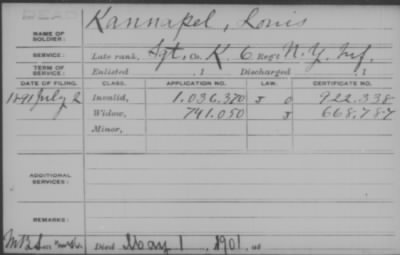 DEAD
NAME OF SOLDIER: Kannapel, Louis
SERVICE: Late rank, Sgt, Co. K, 6 Reg't N.Y. Inf.
TERM OF SERVICE: Enlisted , 1 Discharged , 1
DATE OF FILING. CLASS. APPLICATION NO. LAW. CERTIFICATE NO.
1891 July 2 Invalid, 1.036.370 J O 922.338
Widow, 741.050 J 668.787
Minor,
ADDITIONAL SERVICES:
REMARKS:
Died May 1, 1901, at